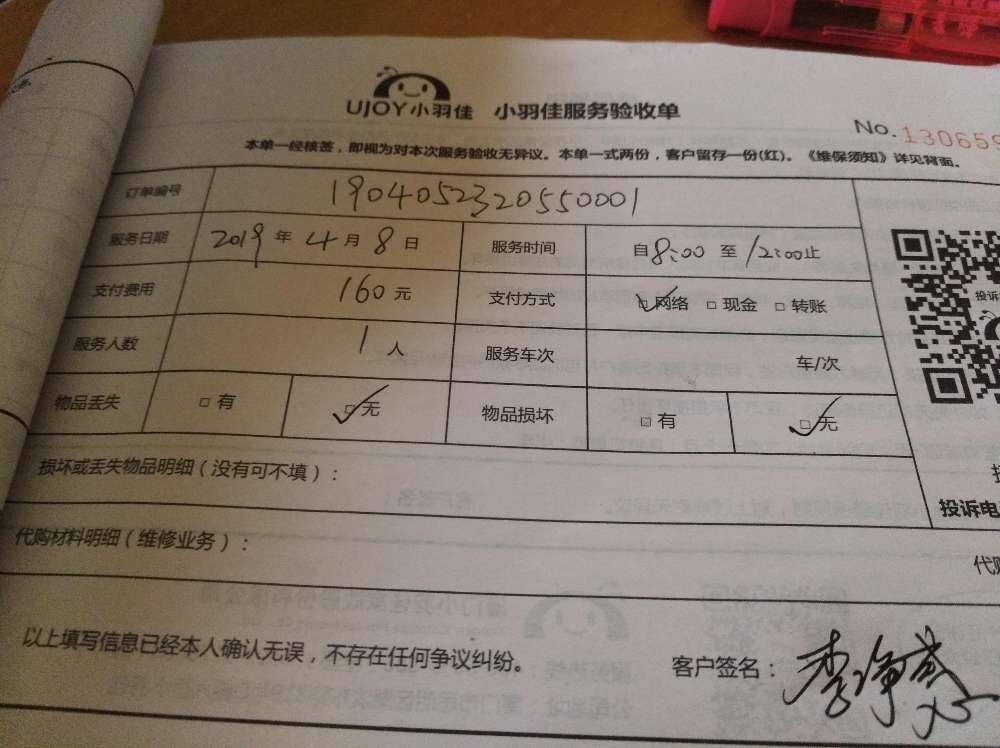 UJOY小羽佳 小羽佳服务验收单
No.130659
本单一经核签，即视为对本次服务验收无异议。本单一式两份，客户留存一份(红)。《维保须知》详见背面。
订单编号 1904052320550001
服务日期 2019年4月8日 服务时间 自8:00至12:00止
支付费用 160元 支付方式 □网络 □现金 □转账
投诉
服务人数 1人 服务车次 车/次
物品丢失 □有 □无 物品损坏 □有 □无
损坏或丢失物品明细（没有可不填）：
投诉电
代购材料明细（维修业务）：
代购
以上填写信息已经本人确认无误，不存在任何争议纠纷。 客户签名：